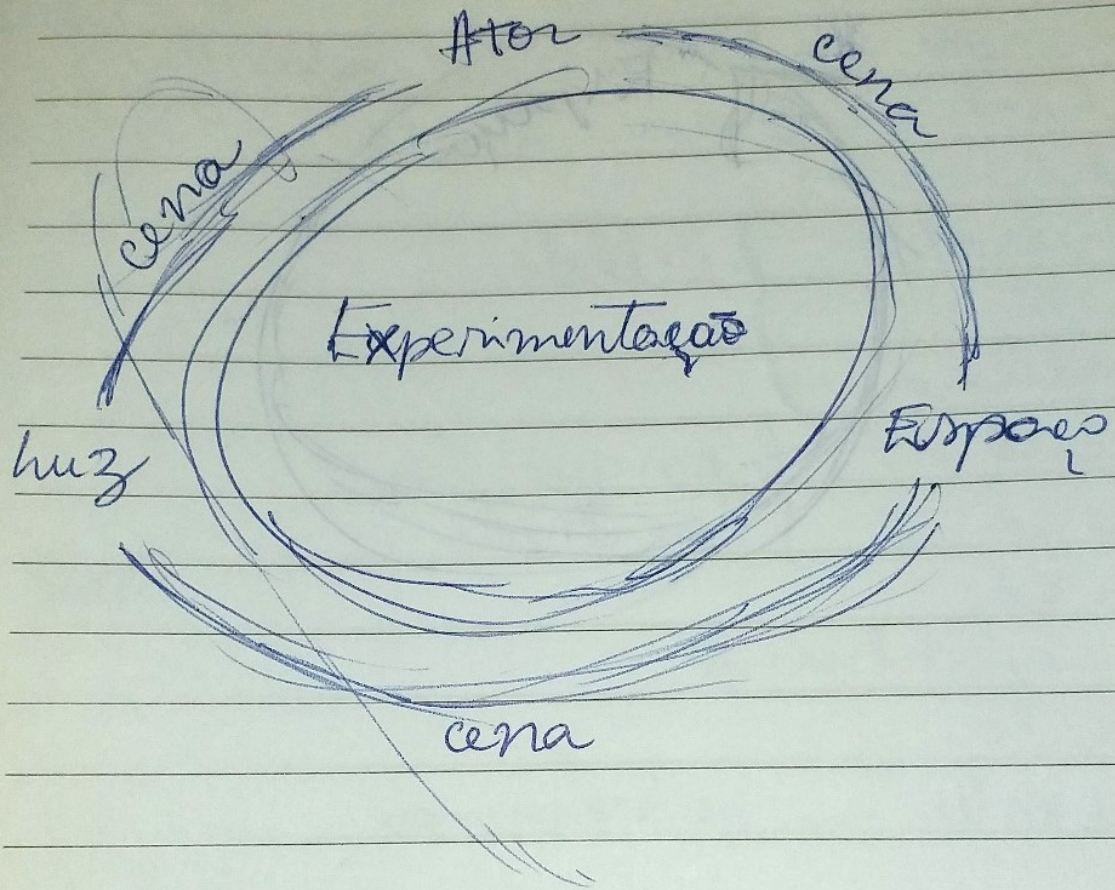 Ator
cena
cena
Experimentação
Luz
Espaço
cena